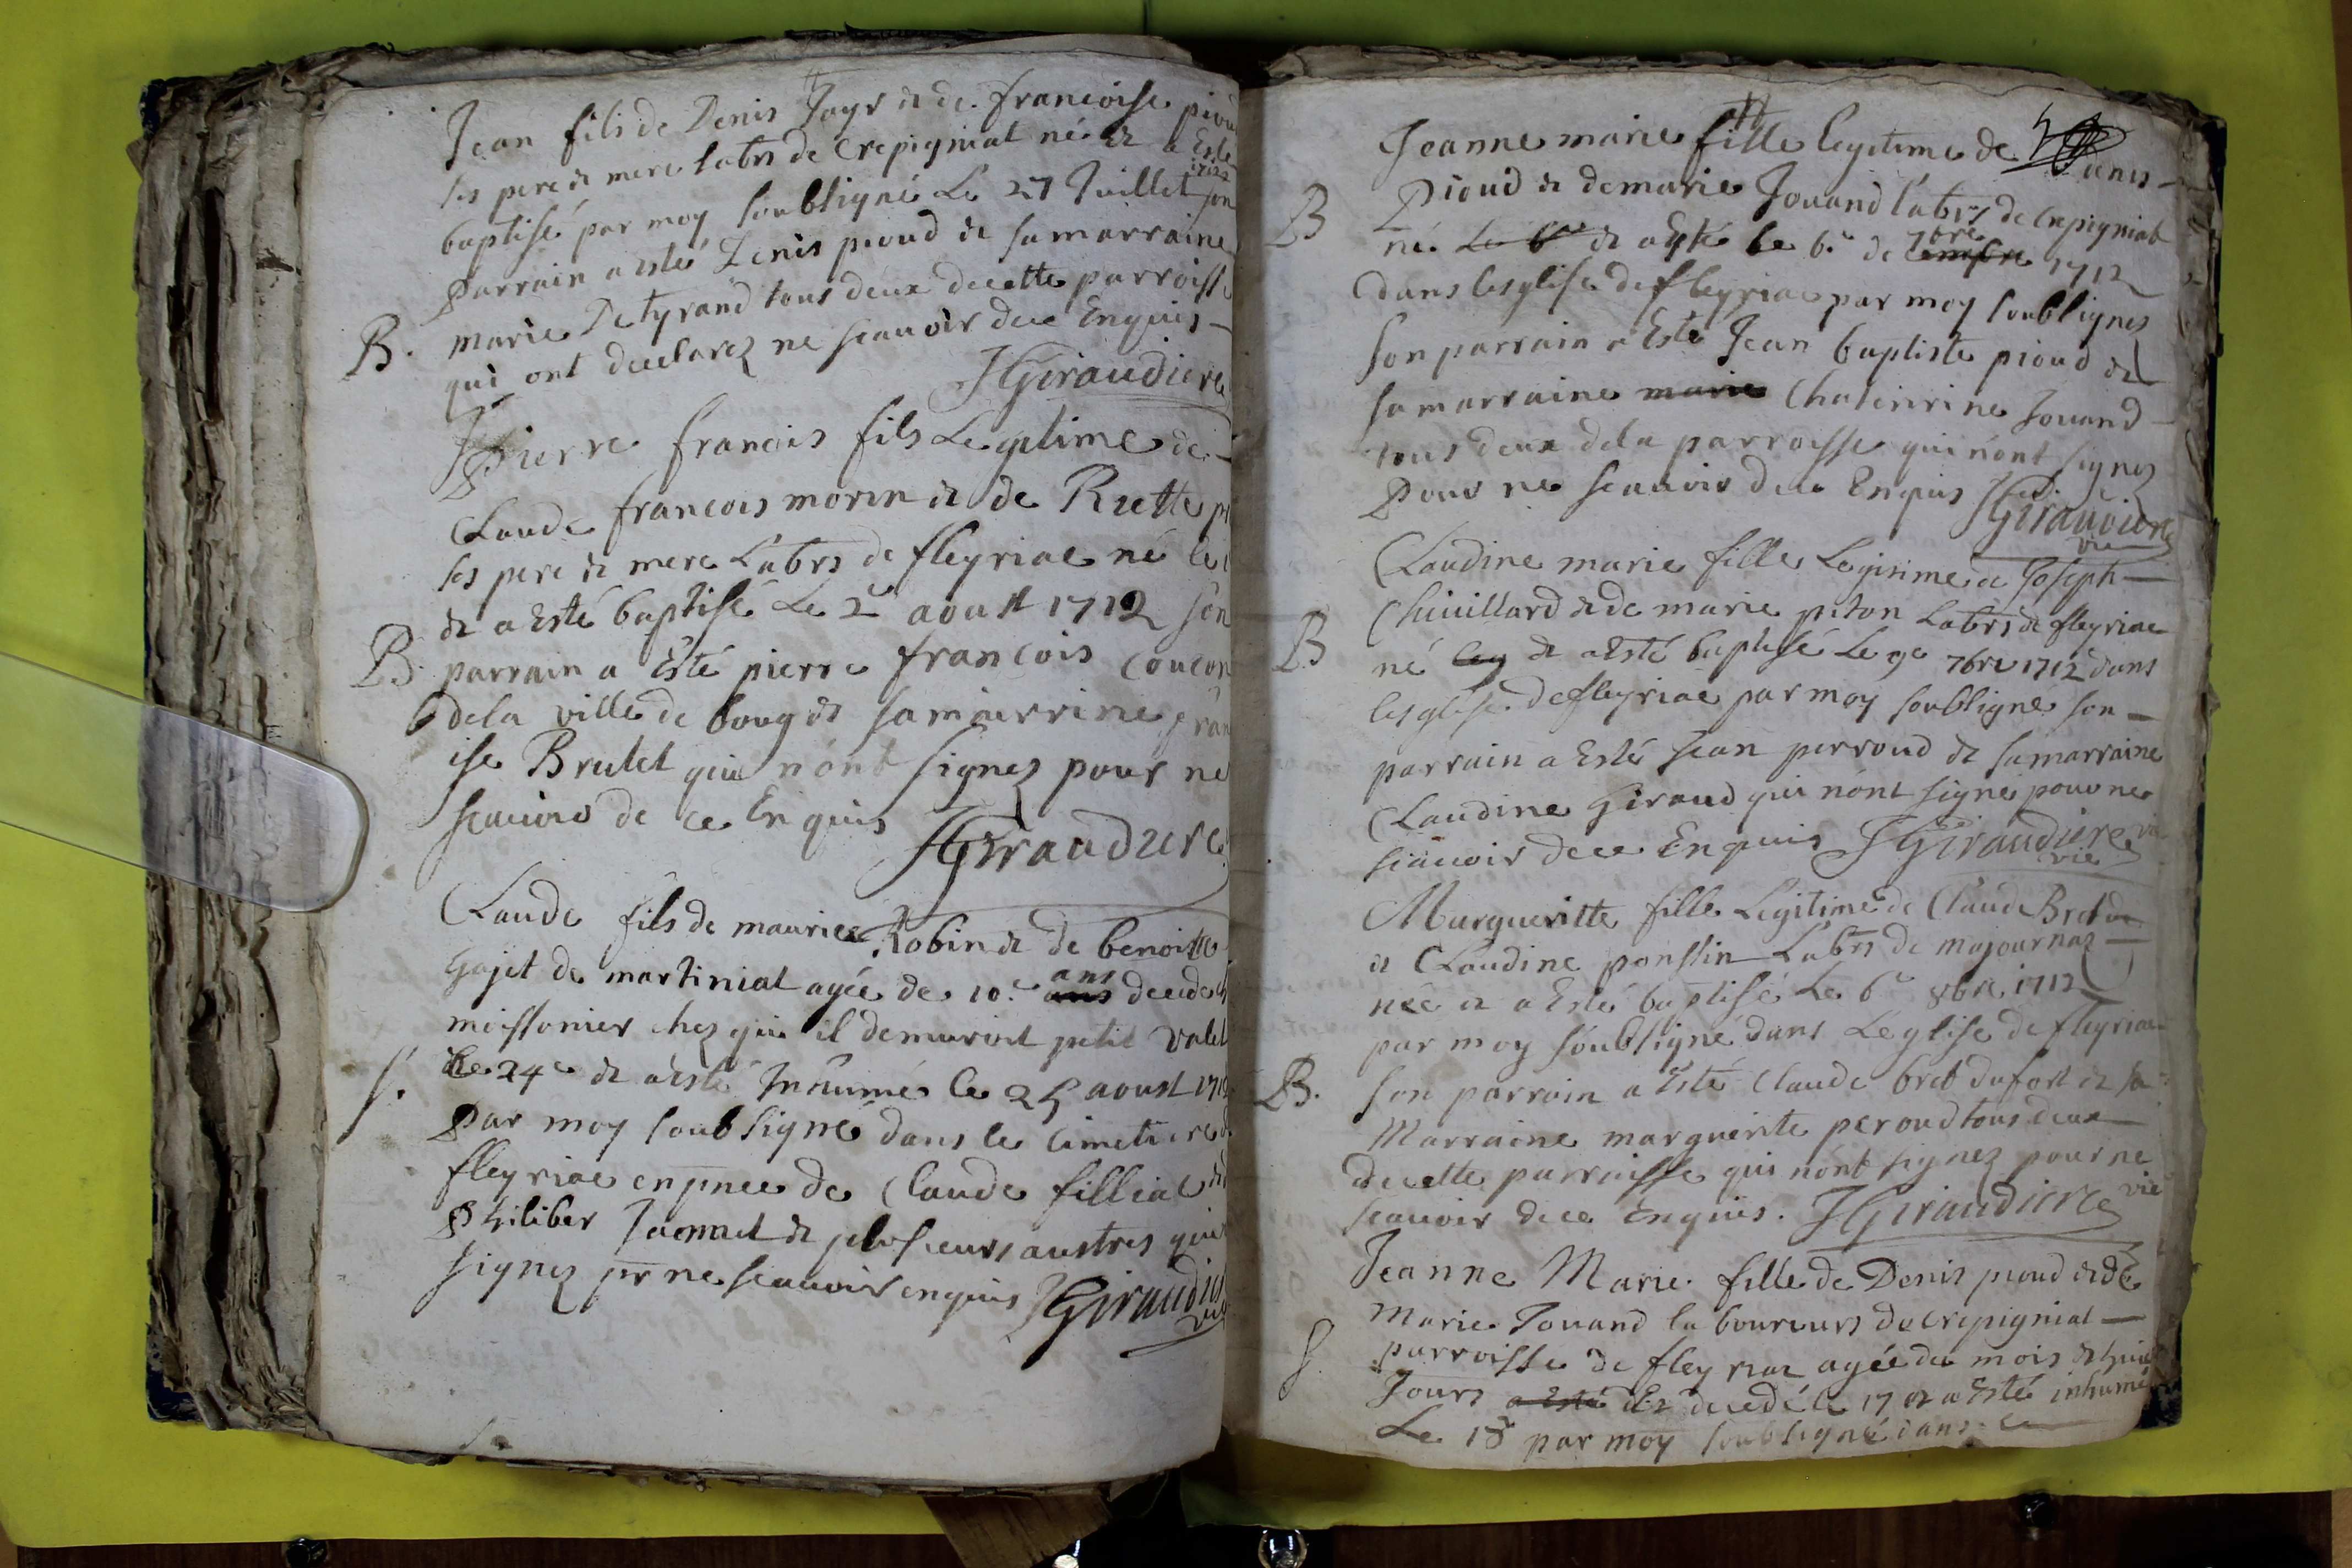 Jean fils de Denis Jayr & de francoise piou
ses pere & mere labrs de Crepigniat né & a Esté
baptisé par moy soubligné Le 27 Juillet 1712 son
parrain a esté Denis pioud & sa marraine
B. marie Detyrand tous deux de cette parroisse
qui ont declarez ne scauoir de ce Enquis
JGiraudiere
Pierre francois fils Legitime de
Claude francois morin & de Riette
ses pere & mere Labrs de fleyriac né le
& a Esté baptisé Le 2e aoust 1712 son
B. parrain a Esté pierre francois coucon
de la ville de boug & sa marrine fran
ise Brulet qui n'ont signez pour ne
scauoir de ce Enquis JGiraudiere
Claude fils de maurice Robin & de benoitte
Gajet de martiniat agée de 10.e ans ans decede
moissonier chez qui il demuroit petit valet
s. Le 24e & a esté Inhumé le 25 aoust 1712
par moy soubsigné dans le Cimetiere d
fleyriac en pnce de Claude filliat
Philiber Jaomet & plusieurs austres qui
signez pr ne scauoir enquis JGiraudier
vie
Jeanne marie fille legitime de Denis
B Pioud & de marie Jouand labrs de Crepigniat
né Le 6e & a esté le 6.e de 7bre 1712
dans lesglise de fleyriac par moy soubsignes
son parrain a Esté Jean baptiste pioud &
sa marraine marie Chaterine Jouand
tous deux de la parroisse qui n'ont signez
pour ne scauoir de ce Enquis JGiraudiere
vie
Claudine marie fille Legitime de Joseph
Chiuillard & de marie piton Labrs de fleyriac
B né & a Esté baptisé Le 9e 7bre 1712 dans
lesglise de fleyriac par moy soubligné son
parrain a Esté Jean perroud & sa marraine
Claudine Giraud qui n'ont signe pour ne
scauoir de ce Enquis JGiraudiere
vie
Margueritte fille Legitime de Claude Bret
& Claudine ponssin Labrs de majournaz
née & a Esté baptisé Le 6e 8bre 1712
par moy soubligné dans Leglise de fleyriac
B. son parrain a Esté Claude bret dufort & sa
Marraine marguerite peroud tous deux
de cette parroisse qui n'ont signez pour ne
scauoir de ce enquis. JGiraudiere vie
Jeanne Marie fille de Denis pioud & de
Marie Jouand laboureurs de crepigniat
s. parroisse de fleyriac agée du mois & huit
Jours a Esté decedé le 17 & a Esté inhumé
Le 18e par moy soubligné dans le